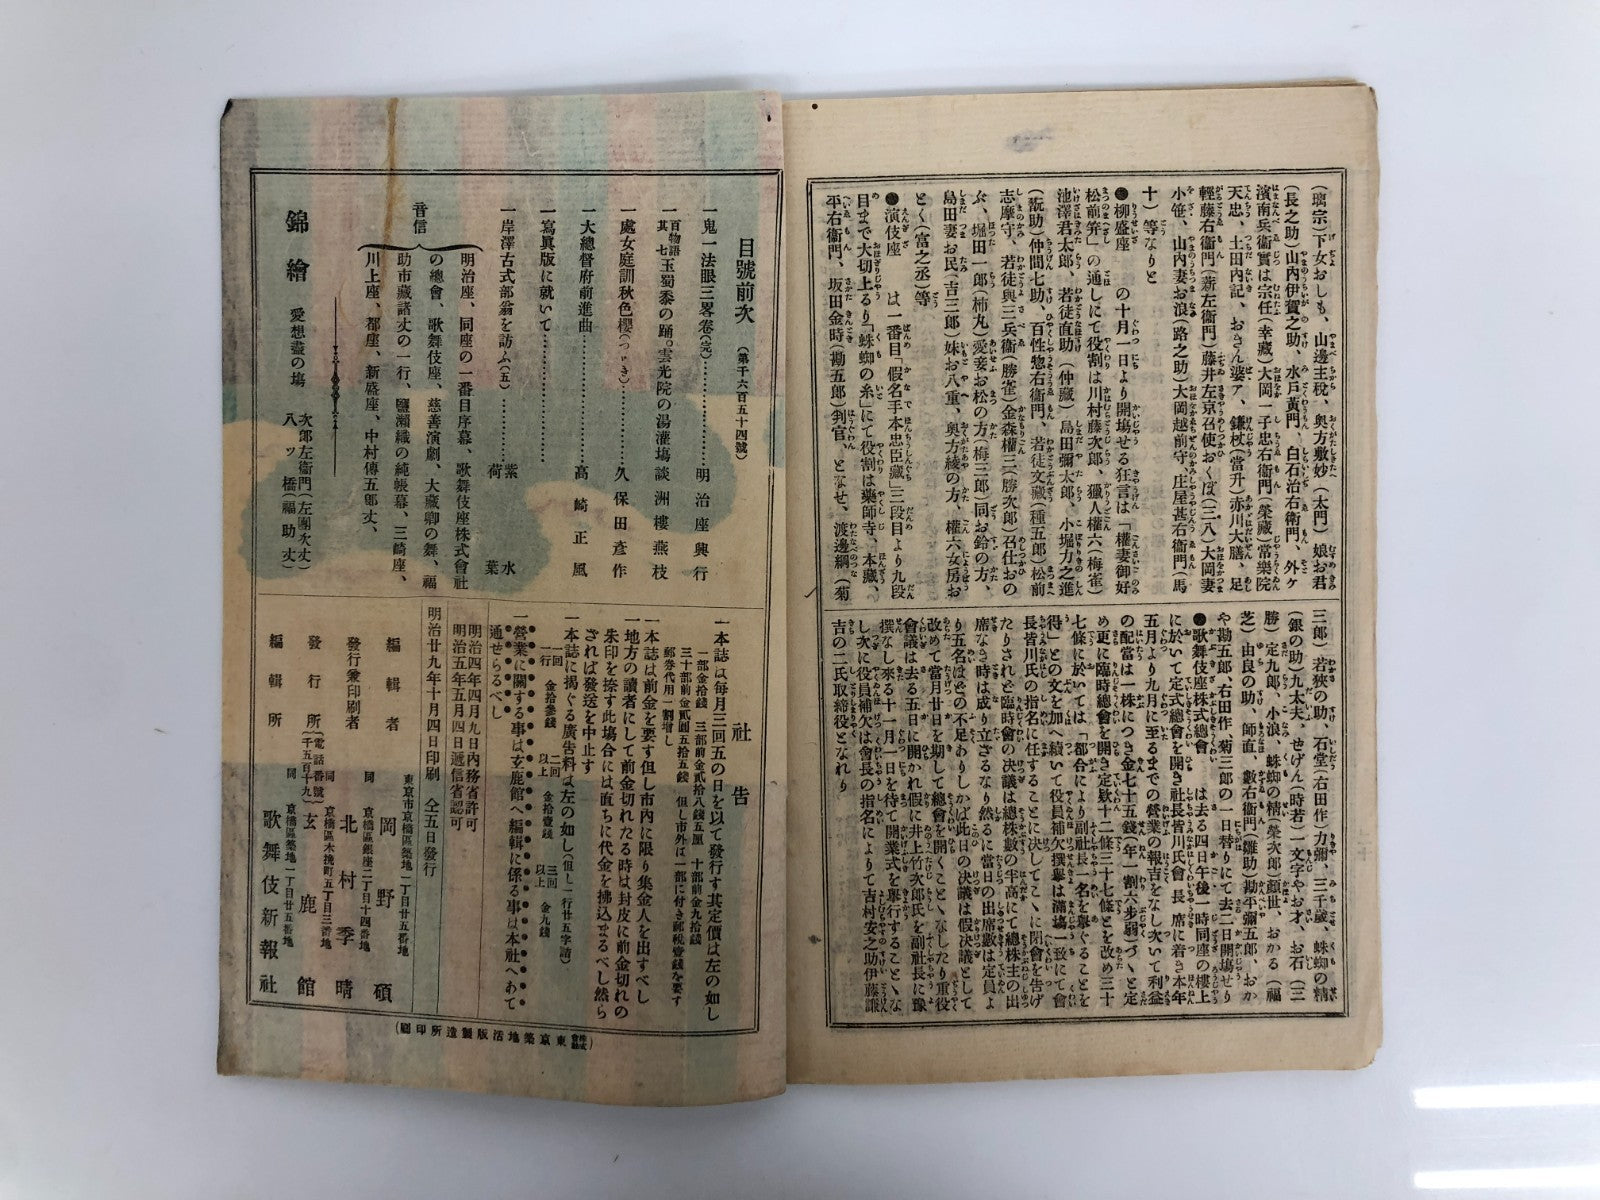 (璃宗)下女おしも、山邊主税、奥方敷妙(太門)娘お君
(長之助)山内伊賀之助、水戸黄門、白石治右衞門、外ヶ
濱南兵衞實は宗任(幸藏)大岡一子忠右衞門(榮藏)常樂院
天忠、土田内記、おさん婆ア、鎌杖(當升)赤川大膳、足
輕藤右衞門(新左衞門)藤井左京召使おくぼ(三八)大岡妻
小笹、山内妻お浪(路之助)大岡越前守、庄屋甚右衞門(馬
十)等なりと
●柳盛座 の十月一日より開塲せる狂言は「權妻御好
松前笄」の通しにて役割は川村藤次郎、獵人權六(梅雀)
池澤君太郎、若徒直助(仲藏)島田彌太郎、小堀力之進
(翫助)仲間七助、百性惣右衞門、若徒文藏(種五郎)松前
志摩守、若徒與三兵衞(勝雀)金森權三(勝次郎)召仕おの
ぶ、堀田一郎(柿丸)愛妾お松の方(梅三郎)同お鈴の方、
島田妻お民(吉三郎)妹お八重、奥方綾の方、權六女房お
とく(富之丞)等
●演伎座 は一番目「假名手本忠臣藏」三段目より九段
目まで大切上るり「蛛蜘の糸」にて役割は藥師寺、本藏、
平右衞門、坂田金時(勘五郎)判官、となせ、渡邊綱(菊
三郎)若狹の助、石堂(右田作)力彌、三千歳、蛛蜘の精
(銀の助)九太夫、せげん(時若)一文字やお才、お石(三
勝)定九郎、小浪、蛛蜘の精(榮次郎)顔世、おかる(福
芝)由良の助、師直、數右衞門(雛助)勘平彌五郎、おか
や勘五郎、右田作、菊三郎の一日替りにて去二日開塲せり
●歌舞伎座株式總會 は去る四日午後一時同座の樓上
に於いて定式總會を開き社長皆川氏會長席に着き本年
五月より九月に至るまでの營業の報告をなし次いて利益
の配當は一株につき金七十五錢(年一割六步弱)づヽと定
め更に臨時總會を開き定欵十二條三十七條とを改め三十
七條に於いては「都合により副社長一名を擧ぐることを
得」との文を加へ續いて役員補欠撰擧は滿塲一致にて會
長皆川氏の指名に任することに決してこヽに閉會を告げ
たりされど臨時會の決議は總株數の半高にて總株主の出
席なき時は成り立さるなり然るに當日の出席數は定員よ
り五名ほどの不足ありしかば此日の决議は假决議として
改めて當月廿日を期して總會を開くことヽなしたり重役
會議は去る五日に開かれ假に井上竹次郎氏を副社長に豫
撰なし來る十一月一日を待て開業式を擧行することヽな
し次に役員補欠は會長の指名によりて吉村安之助伊藤謙
吉の二氏取締役となれり
目號前次(第千六百五十四號)
一鬼一法眼三畧卷(完)………明治座興行
一百物語其七玉蜀黍の踊。雲光院の湯灌塲 談洲樓燕枝
一處女庭訓秋色櫻(つゞき)………久保田彦作
一大總督府前進曲………高崎正風
一寫眞版に就いて………
一岸澤古式部翁を訪ふ(五)………紫水荷葉
音信
明治座、同座の一番目序幕、歌舞伎座株式會社
の總會、歌舞伎座、慈善演劇、大藏卿の舞、福
助市藏諸丈の一行、鹽瀨織の純帳幕、三崎座、
川上座、都座、新盛座、中村傳五郎丈、
錦繪 愛想盡の塲 次郎左衞門(左團次丈) 八ッ橋(福助丈)
社告
一本誌は毎月三回五の日を以て發行す其定價は左の如し
一部金拾錢 三部前金貳拾八錢五厘 十部前金九拾錢
三十部前金貳圓五拾五錢 但し市外ば一部に付き郵税壹錢を要す
郵券代用一割增し
一本誌は前金を要す但し市内に限り集金人を出すべし
一地方の讀者にして前金切れたる時は封皮に前金切れの
朱印を捺す此塲合には直ちに代金を拂込まるべし然ら
ざれば發送を中止す
一本誌に揭ぐる廣告料は左の如し(但し一行廿五字詰)
一回一行 金拾參錢 二回以上 金拾壹錢 三回以上 金九錢
一營業に關する事は玄鹿館へ編輯に係る事は本社へあて
通せらるべし
明治四年四月九日内務省許可
明治五年五月四日遞信省認可
明治廿九年十月四日印刷 仝五日發行
編輯者 東京市京橋區築地一丁目廿五番地 岡野碩
發行兼印刷者 同 京橋區銀座二丁目十四番地 北村季晴
發行所 (電話番號千五百十九) 同 京橋區木挽町五丁目三番地 玄鹿館
編輯所 同 京橋區築地一丁目廿五番地 歌舞伎新報社
(株式會社東京築地活版製造所印刷)